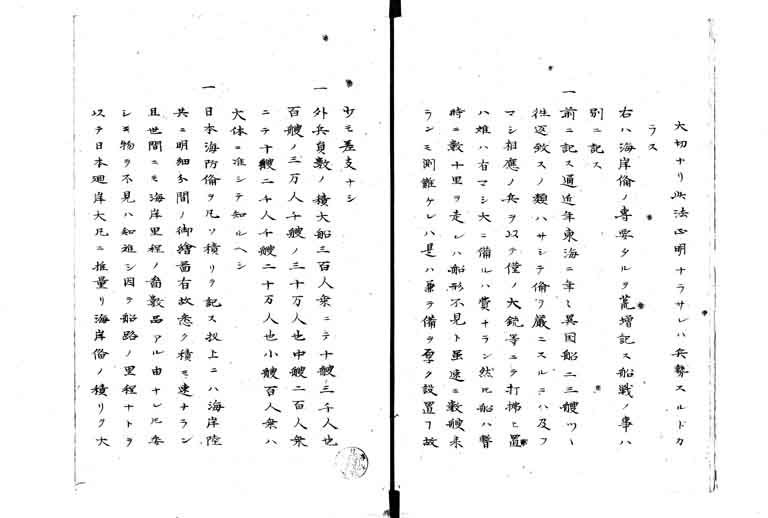 大切ナリ此法正明ナラサレハ兵勢スルドカ
ラス
右ハ海岸俻ノ專要タルヲ荒増記ス船戦ノ事ハ
別ニ記ス
一 前ニ記ス通近年東海ニ年々異国船二三艘ツヽ
徃返致スノ類ハサシテ俻ヲ嚴ニスルニハ及フ
マシ相應ノ兵ヲ以テ僅ノ大銃等ニテ打拂ヒ置
ハ難ハ有マシ大ニ備ルハ費ナラン然𪜈船ハ瞥
時ニ數十里ヲ走レハ船形不見ト虽速ニ數艘来
ランモ測難ケレハ是ハ兼テ備ヲ厚ク設置ヿ故
少モ差支ナシ
一 外兵員數ノ積大船三百人乗ニテ十艘三千人也
百艘ノ三万人千艘ノ三十万人也中艘二百人乗
ニテ十艘二千人千艘二十万人也小艘百人乗ハ
大体ニ准シテ知ルヘシ
一 日本海防俻ヲ凡ソ積リヲ記ス扠上ニハ海岸陸
共ニ明細分間ノ御繪圖有故悉ク積モ速ナラン
且世間ニモ海岸里程ノ畨數品アル由ナレ𪜈委
シキ物ヲ不見ハ知難シ因テ船路ノ里程ナトヲ
以テ日本廻岸大凡ニ推量リ海岸俻ノ積リヲ大